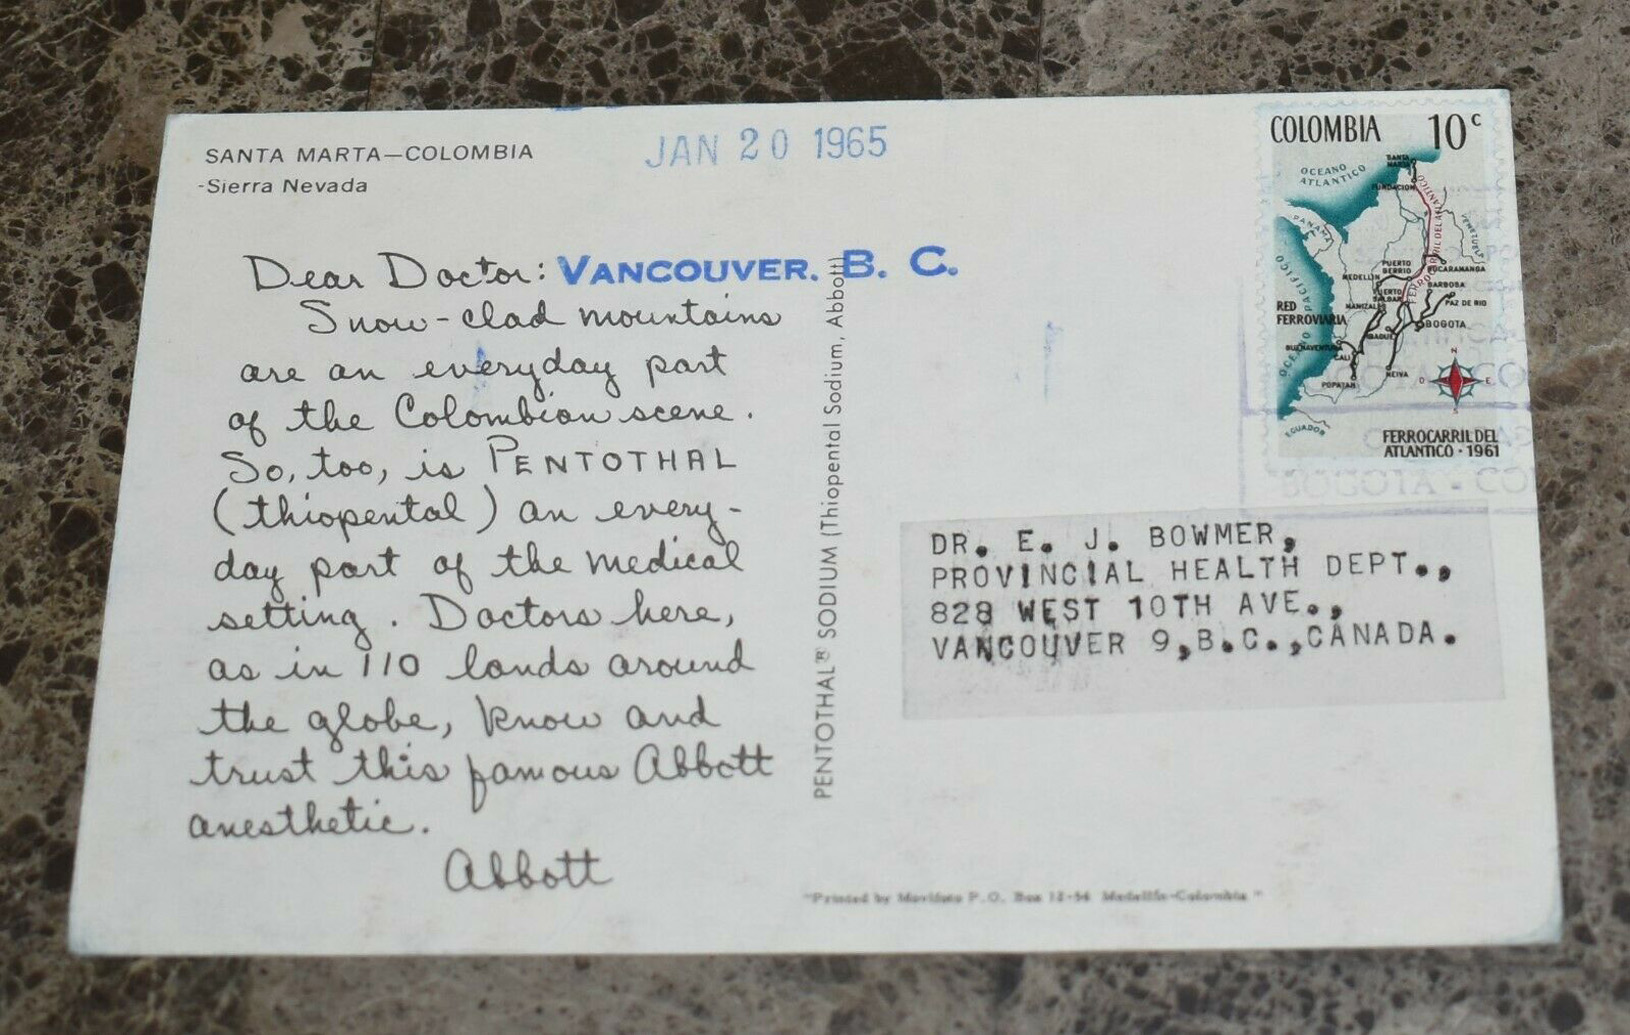 SANTA MARTA—COLOMBIA
-Sierra Nevada
JAN 20 1965
VANCOUVER. B. C.
Dear Doctor:
Snow-clad mountains
are an everyday part
of the Colombian scene.
So, too, is PENTOTHAL
(thiopental) an every-
day part of the medical
setting. Doctors here,
as in 110 lands around
the globe, know and
trust this famous Abbott
anesthetic.
Abbott
PENTOTHAL® SODIUM (Thiopental Sodium, Abbott)
COLOMBIA 10c
OCEANO ATLANTICO
SANTA MARTA
FUNDACION
FERROCARRIL DEL ATLANTICO
PANAMA
VENEZUELA
OCEANO PACIFICO
PUERTO BERRIO
BUCARAMANGA
MEDELLIN
BARBOSA
PUERTO SALGAR
PAZ DE RIO
MANIZALES
RED FERROVIARIA
BOGOTA
IBAGUE
BUENAVENTURA
CALI
NEIVA
POPAYAN
N
O E
S
ECUADOR
FERROCARRIL DEL
ATLANTICO · 1961
BOGOTA - CO
DR. E. J. BOWMER,
PROVINCIAL HEALTH DEPT.,
828 WEST 10TH AVE.,
VANCOUVER 9,B.C.,CANADA.
"Printed by Movifoto P.O. Box 12-54 Medellín-Colombia"